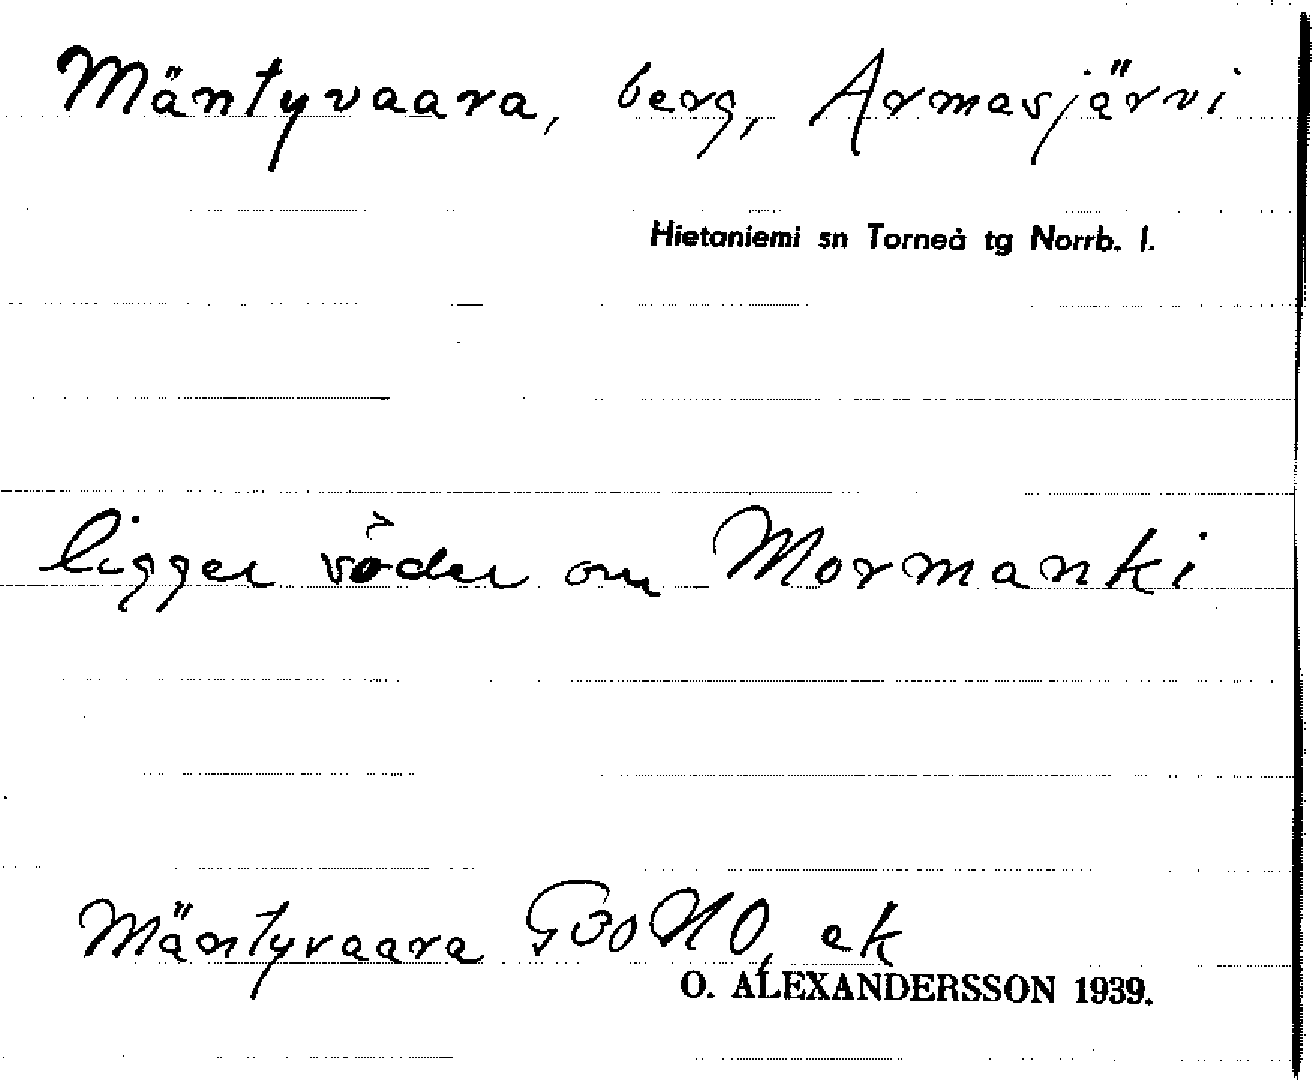 Mäntyvaara, berg, Armasjärvi
Hietaniemi sn Torneå tg Norrb. l.
ligger söder om Mormanki
Mäntyvaara G30 NO, ek
O. ALEXANDERSSON 1939.